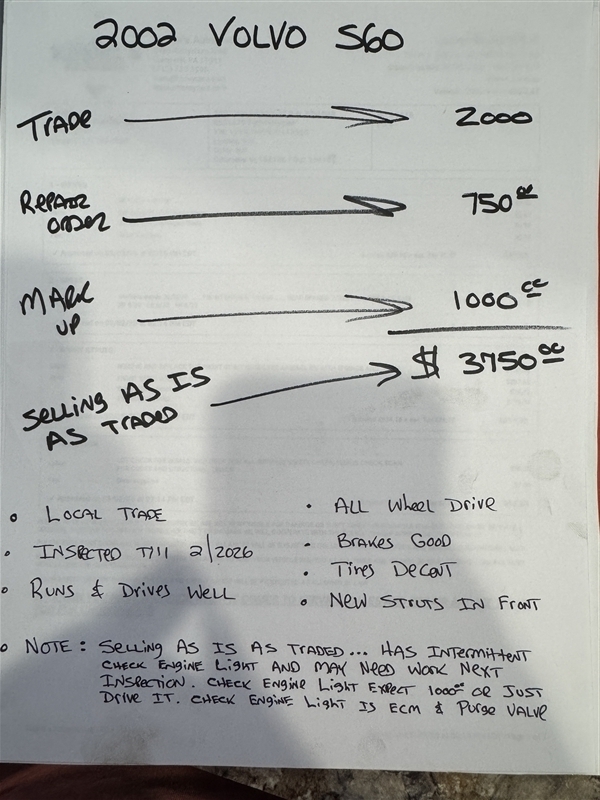 2002 VOLVO S60
TRADE 2000
REPAIR
ORDER 750.00
MARK
UP 1000.00
$ 3750.00
SELLING AS IS
AS TRADED
• LOCAL TRADE
• INSPECTED TIll 2/2026
• RUNS & DRIVES WELL
• ALL WHEEL DRIVE
• BRAKES GOOD
• TIRES DECENT
• NEW STRUTS IN FRONT
• NOTE: SELLING AS IS AS TRADED... HAS INTERMITTENT
CHECK ENGINE LIGHT AND MAY NEED WORK NEXT
INSPECTION. CHECK ENGINE LIGHT EXPECT 1000.00 OR JUST
DRIVE IT. CHECK ENGINE LIGHT IS ECM & PURGE VALVE